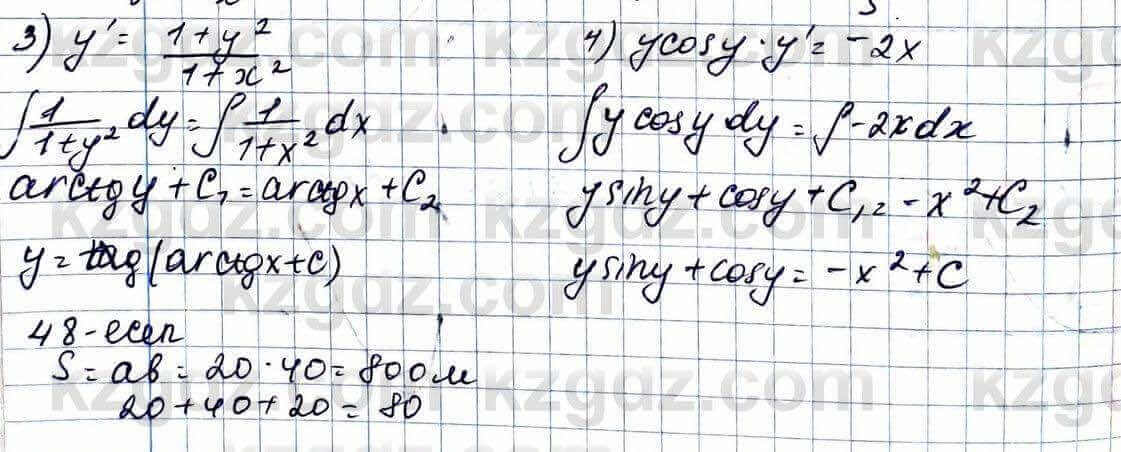 3) y' = (1+y²)/(1+x²)
∫ 1/(1+y²) dy = ∫ 1/(1+x²) dx
arctg y + C₁ = arctg x + C₂
y = tg(arctgx+c)
4) ycosy · y' = -2x
∫ y cosy dy = ∫ -2x dx
ysiny + cosy + C₁ = -x² + C₂
ysiny + cosy = -x² + C
48-есеп
S = ab = 20 · 40 = 800 м
20 + 40 + 20 = 80
kzgdz.com